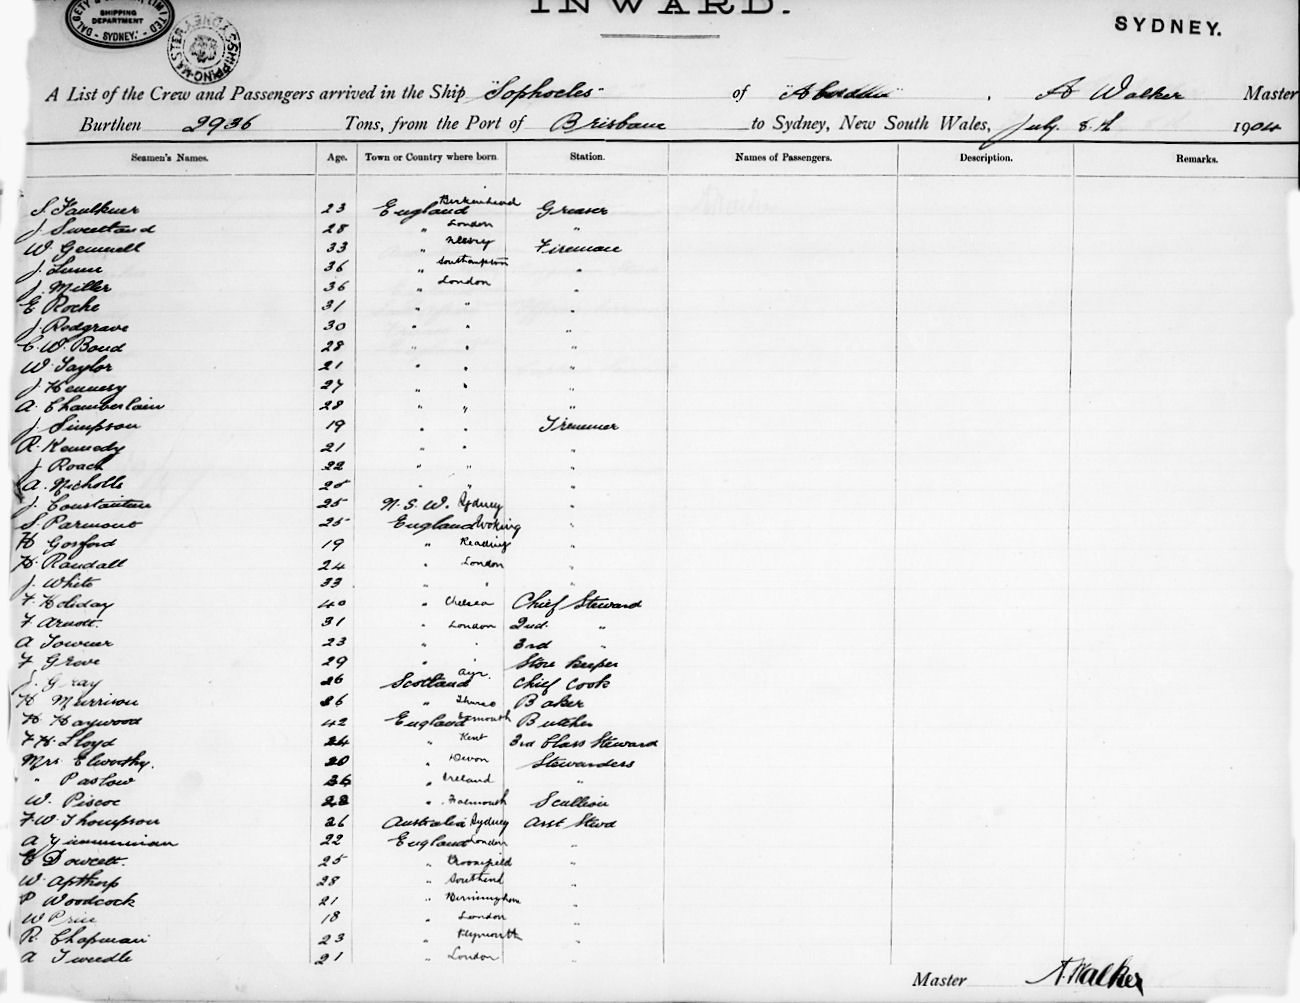 DALGETY & COMPANY LIMITED
SHIPPING DEPARTMENT
- SYDNEY. -
SHIPPING MASTER SYDNEY
INWARD.
SYDNEY.
A List of the Crew and Passengers arrived in the Ship "Sophocles" of "Aberdeen", A Walker Master
Burthen 2936 Tons, from the Port of Brisbane to Sydney, New South Wales, July 8th 1904
Seamen's Names. Age. Town or Country where born. Station. Names of Passengers. Description. Remarks.
S Faulkner 23 England Birkenhead Greaser
J Sweetland 28 " London "
W. Gemmell 33 " Newry Fireman
J. Lunn 36 " Southampton "
J. Miller 36 " London "
E Roche 31 " " "
J. Redgrave 30 " " "
C. W. Bond 28 " " "
W. Taylor 21 " " "
J Hennesy 27 " " "
A. Chamberlain 28 " " "
J Simpson 19 " " Trimmer
R. Kennedy 21 " " "
J Roach 22 " " "
A. Nicholls " " "
J. Constantine 25 N. S. W. Sydney "
S. Parmout 25 England Woking "
H Gosford 19 " Reading "
H. Randall 24 " London "
J. White 33 " " "
F. Holiday 40 " Chelsea Chief Steward
F. Arnott. 31 " London 2nd "
A Towner 23 " " 3rd "
F Grove 29 " " Store Keeper
J. Gray 26 Scotland Ayr. Chief Cook
H Murrison 26 " Thurso Baker
H Haywood 42 England Exmouth Butcher
F. H. Lloyd 24 " Kent 3rd Class Steward
Mrs Elworthy. 20 " Devon Stewardess
" Paslow 26 " Ireland "
W. Piscoe 22 " Falmouth Scullion
F. W. Thompson 26 Australia Sydney Asst Stewd
A 22 England London "
E Dowcett. 25 " "
W. Apthorp 28 " Southend "
P Woodcock 21 " Birmingham "
W Price 18 " London "
R. Chapman 23 " Plymouth "
A Tweedle 21 " London "
Master A. Walker